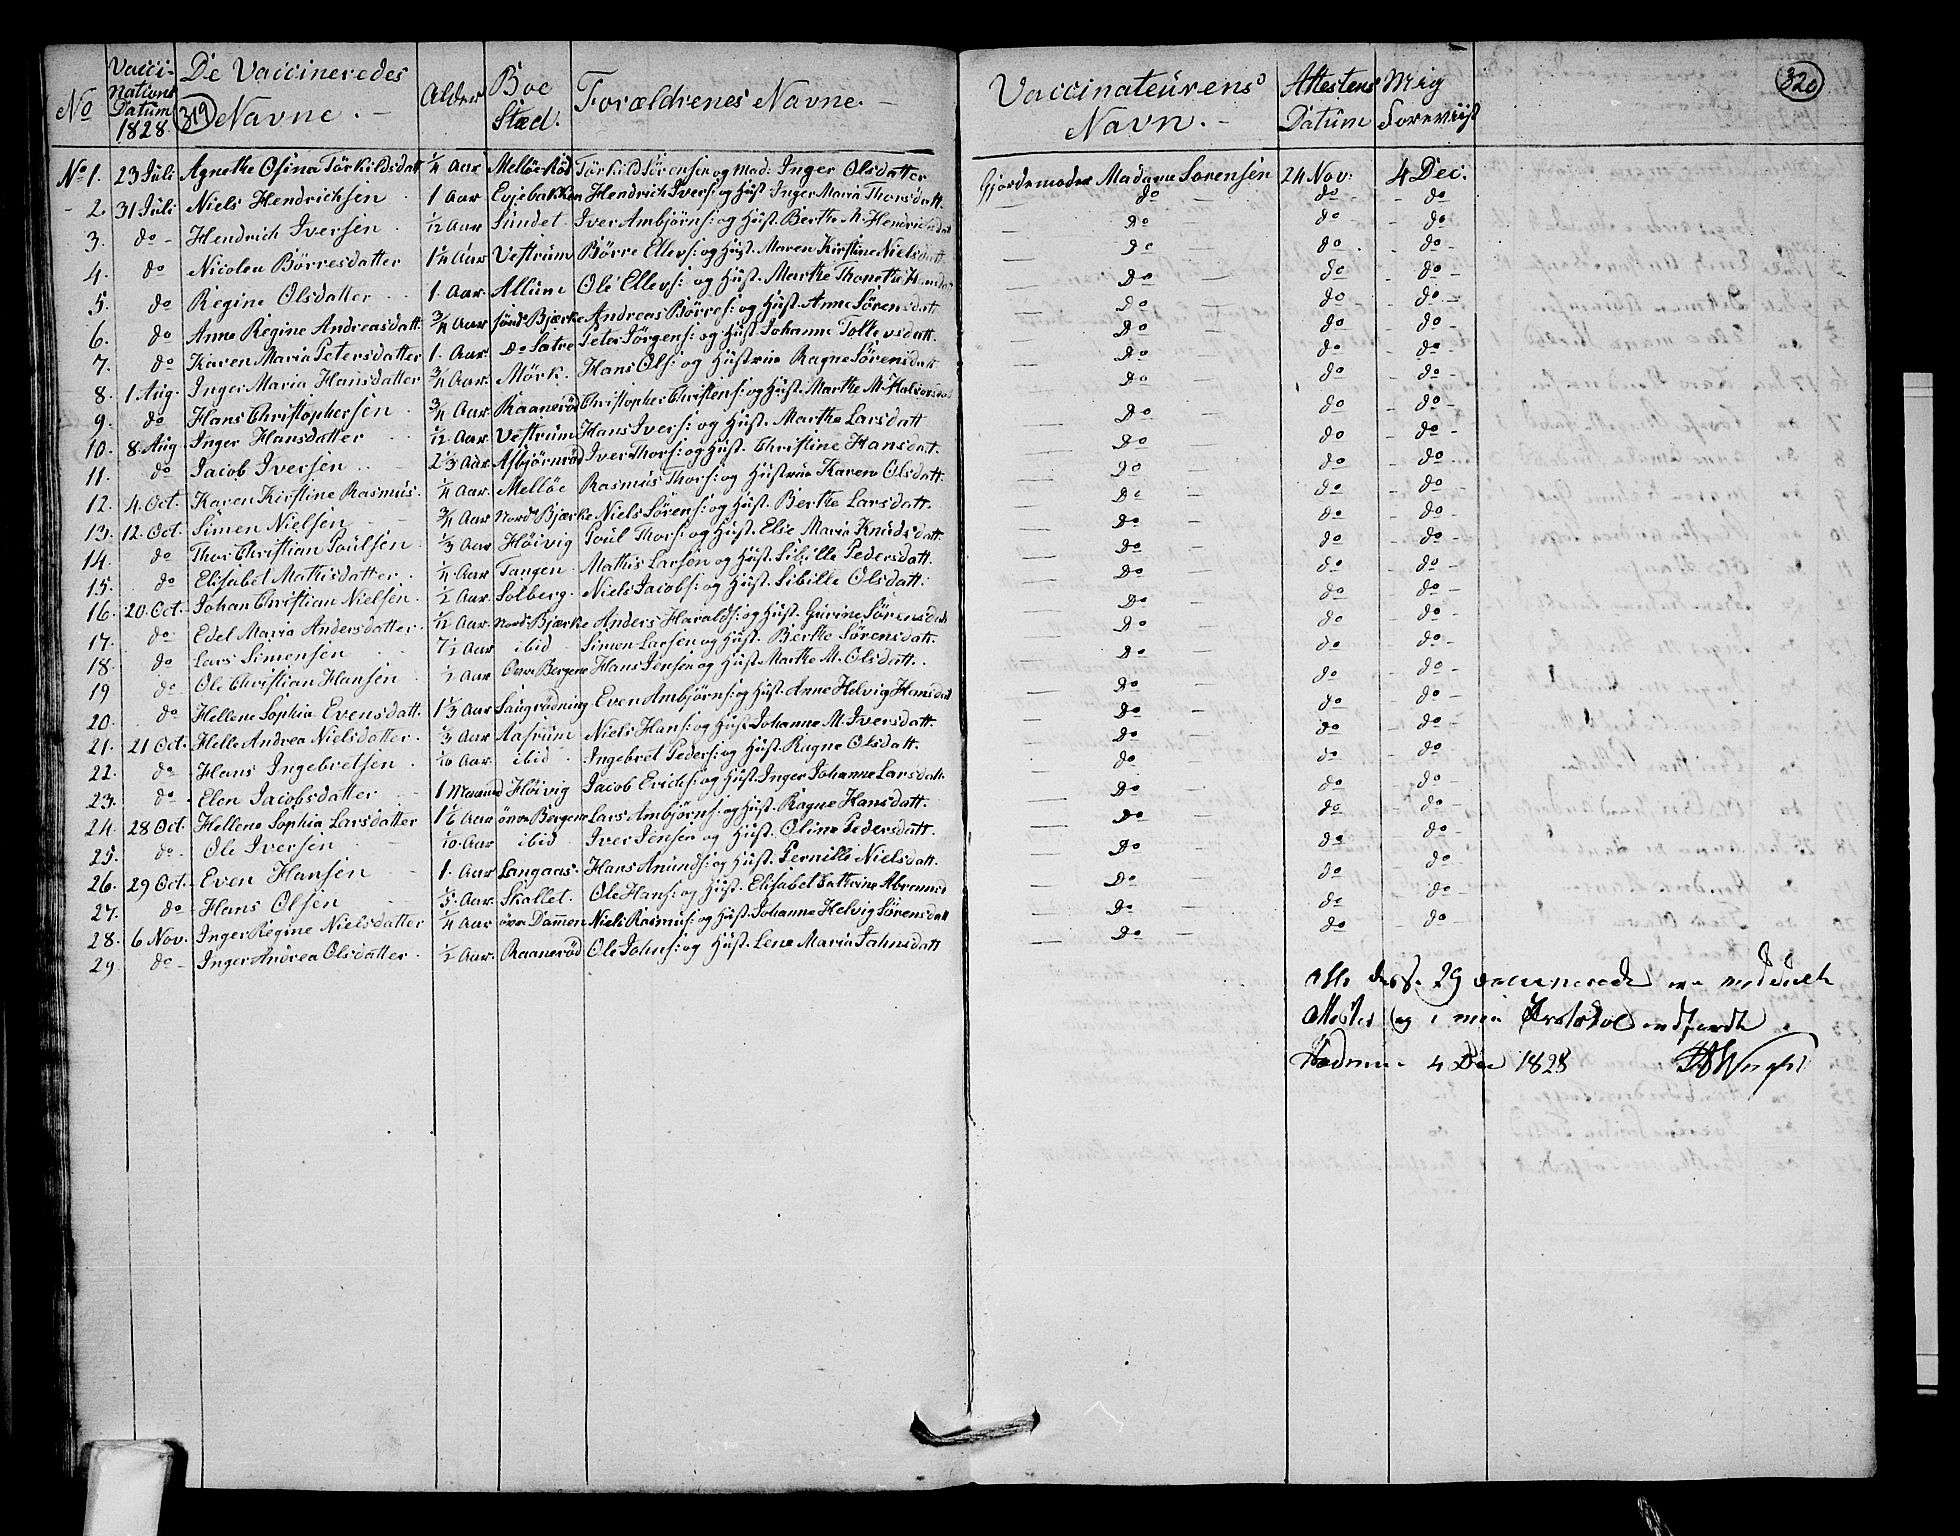 No | Vaccinations Datum 1828 | De Vaccineredes Navne. | Alder | Boe Stæd. | Forældrenes Navne. | Vaccinateurens Navn. | Attestens Datum | Mig Foreviist
319
320
No 1. | 23 Juli | Agnethe Osina Törkildsdatt | 1/4 Aar | Mellöe Röd | Törkild Sörensen og Mad: Inger Olsdatter | Gjordemoder Madame Sorensen | 24 Nov: | 4 Dec.
2. | 31 Juli | Niels Hendrichsen | 1 Aar | Evjebakken | Hendrich Ivers: og Hust: Inger Maria Thorsdatt. | do | do | do
3. | do | Hendrich Iversen | 1/2 Aar | Sundet | Iver Ambjörns: og Hust. Berthe M. Hendrichsdatt | do | do | do
4. | do | Nicolea Börresdatter | 1 1/4 Aar | Vestrum | Börre Ellevs: og Hust. Maren Kirstine Nielsdatt. | do | do | do
5. | do | Regine Olsdatter | 1 Aar | Allum | Ole Ellevs: og Hust. Marthe Thonette | do | do | do
6. | do | Anne Regine Andreasdatt | 3/4 Aar | sönd. Bjærke | Andreas Börres: og Hust. Anne Sörensdatt | do | do | do
7. | do | Karen Maria Petersdatter | 1. Aar | do Sætre | Peter Jörgens: og Hust. Johanne Tollevsdatt. | do | do | do
8. | 1 Aug. | Inger Maria Hansdatter | 3/4 Aar | Mörk. | Hans Ols: og Hustrue Ragne Sörensdatt | do | do | do
9. | do | Hans Christophersen | 3/4 Aar | Raaneröd | Christopher Christens: og Hust. Marthe M. Halvorsdatt | do | do | do
10. | 8. Aug. | Inger Hansdatter | 1/2 Aar | Vestrum | Hans Ivers: og Hust. Marthe Larsdatt | do | do | do
11. | do | Jacob Iversen | 2 1/3 Aar | Asbjörnröd | Iver Thors: og Hust. Christine Hansdat. | do | do | do
12. | 4. Oct. | Karen Kirstine Rasmus. | 1/4 Aar | Mellöe | Rasmus Thors: og Hustrue Karen Olsdatt. | do | do | do
13. | 12. Oct. | Simen Nielsen | 3/4 Aar | Nord. Bjærke | Niels Sörens: og Hust. Berthe Larsdatt. | do | do | do
14. | do | Thor Christian Poulsen | 1/3 Aar | Höivig | Poul Thors: og Hust. Else Maria Knudsdatt | do | do | do
15. | do | Elisabet Mathisdatter | 1/4 Aar | Tangen | Mathis Larsen og Hust. Sibille Pedersdatt. | do | do | do
16. | 20. Oct. | Johan Christian Nielsen | 1/2 Aar | Solberg. | Niels Jacobs: og Hust. Sibille Olsdatt. | do | do | do
17. | do | Edel Maria Andersdatter | 1/2 Aar | Nord. Bjærke | Anders Haralds: og Hust. Gurine Sörensdatt | do | do | do
18. | do | Lars Simensen | 7 1/2 Aar | ibid | Simen Larsen og Hust. Berthe Sörensdatt. | do | do | do
19 | do | Ole Christian Hansen | 1/2 Aar | Bergene | Hans Jensen og Hust. Marthe M. Olsdatt. | do | do | do
20. | do | Hellene Sophia Evensdatt. | 1 1/3 Aar | Saugrödning | Even Ambjörns: og Hust. Anne Helvig Hansdatt | do | do | do
21. | 21 Oct. | Helle Andrea Nielsdatter | 1/3 Aar | Aasrum | Niels Hans: og Hust. Johanne M. Iversdatt. | do | do | do
22. | do | Hans Ingebretsen | 1/10 Aar | ibid | Ingebret Peders: og Hust. Ragne Olsdatt. | do | do | do
23. | do | Elen Jacobsdatter | 1 Maaned | Höivig | Jacob Erichs: og Hust. Inger Johanne Larsdatt. | do | do | do
24. | 28 Oct. | Hellene Sophia Larsdatter | 1 1/6 Aar | övre Bergene | Lars Ambjörns. og Hust. Ragne Hansdatt. | do | do | do
25. | do | Ole Iversen | 1/10 Aar | ibid | Iver Jensen og Hust. Oline Pedersdatt. | do | do | do
26. | 29 Oct. | Even Hansen | 1. Aar | Langaas. | Hans Anunds: og Hust. Pernille Nielsdatt. | do | do | do
27. | do | Hans Olsen | Aar | Skallet. | Ole Hans: og Hust. Elisabet Cathrine | do | do | do
28. | 6 Nov. | Inger Regine Nielsdatter | 1/4 Aar | övre Dammen | Niels Rasmus: og Hust. Johanne Helvig Sörensdatt | do | do | do
29. | do | Inger Andrea Olsdatter | 1/2 Aar. | Raaneröd | Ole Johns: og Hust. Lene Maria Jahnsdatt | do | do | do
Alle disse 29 vaccinerede ere meddeelt
Attester og i min Protokol indførdt
4 Dec 1828